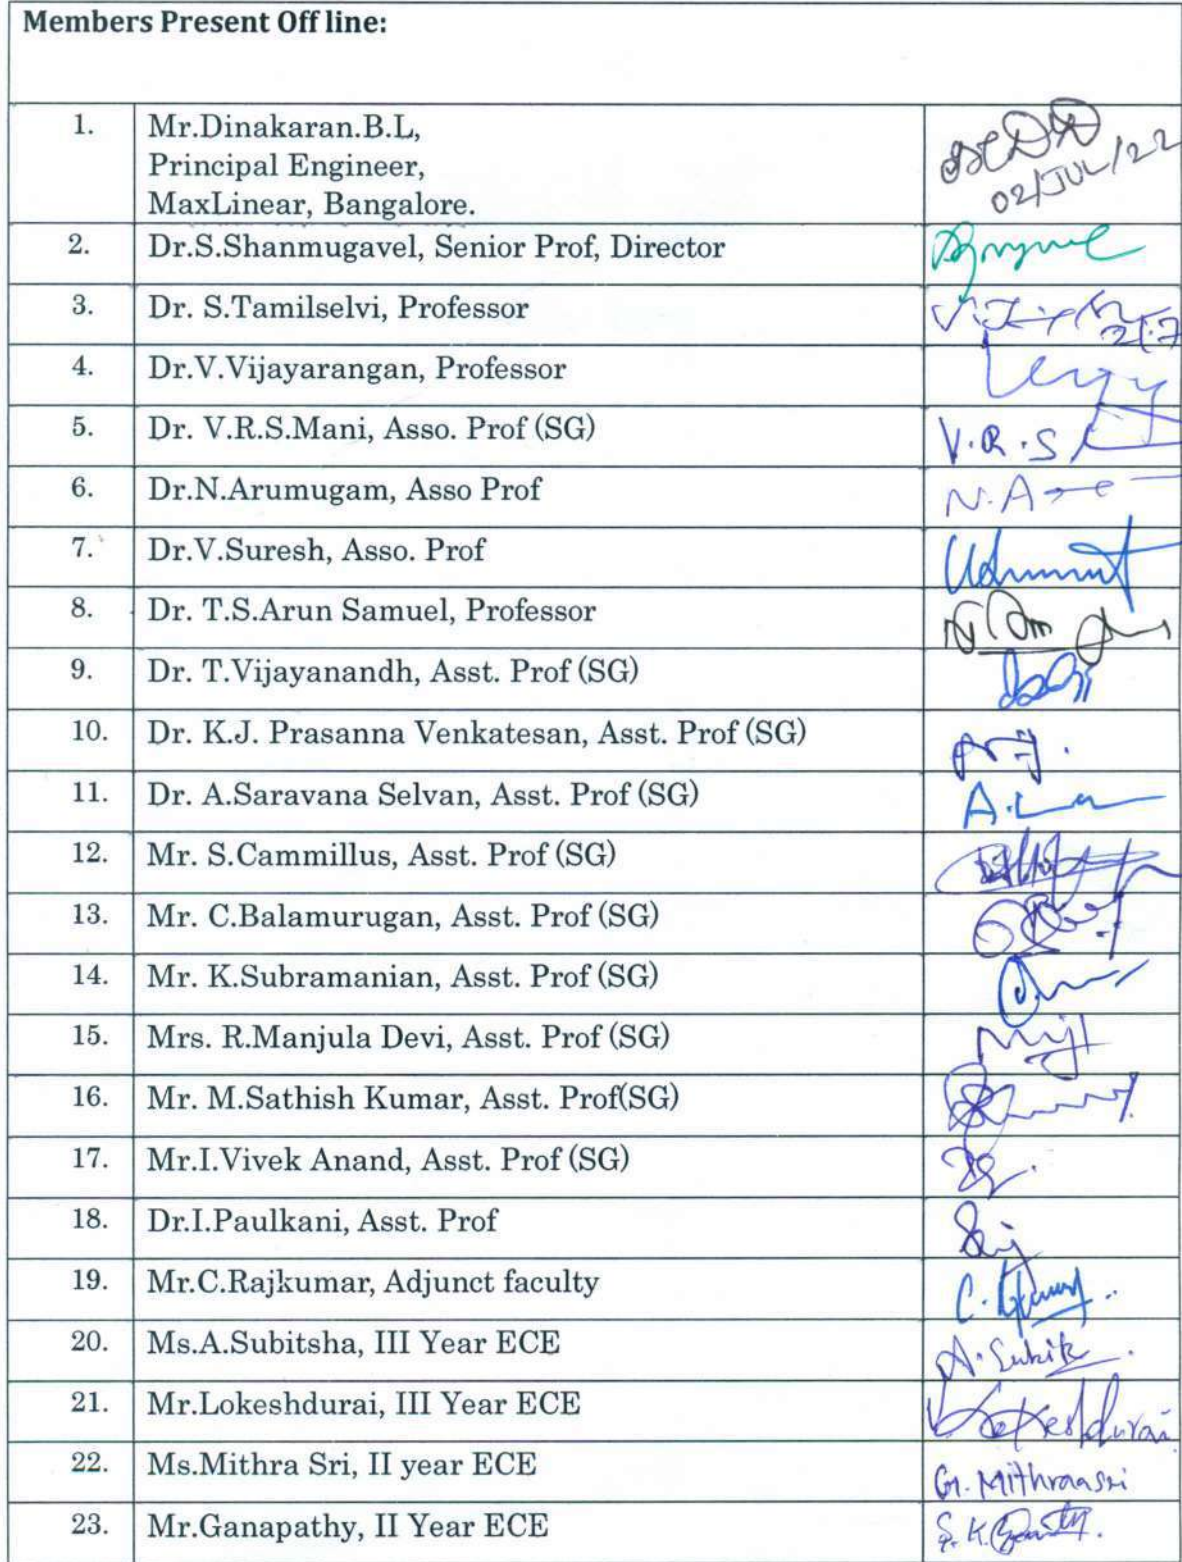 Members Present Off line:
1.
Mr.Dinakaran.B.L,
Principal Engineer,
MaxLinear, Bangalore.
02/JUL/22
2.
Dr.S.Shanmugavel, Senior Prof, Director
3.
Dr. S.Tamilselvi, Professor
4.
Dr.V.Vijayarangan, Professor
5.
Dr. V.R.S.Mani, Asso. Prof (SG)
V.R.S
6.
Dr.N.Arumugam, Asso Prof
7.
Dr.V.Suresh, Asso. Prof
8.
Dr. T.S.Arun Samuel, Professor
9.
Dr. T.Vijayanandh, Asst. Prof (SG)
10.
Dr. K.J. Prasanna Venkatesan, Asst. Prof (SG)
11.
Dr. A.Saravana Selvan, Asst. Prof (SG)
12.
Mr. S.Cammillus, Asst. Prof (SG)
13.
Mr. C.Balamurugan, Asst. Prof (SG)
14.
Mr. K.Subramanian, Asst. Prof (SG)
15.
Mrs. R.Manjula Devi, Asst. Prof (SG)
16.
Mr. M.Sathish Kumar, Asst. Prof(SG)
17.
Mr.I.Vivek Anand, Asst. Prof (SG)
18.
Dr.I.Paulkani, Asst. Prof
19.
Mr.C.Rajkumar, Adjunct faculty
20.
Ms.A.Subitsha, III Year ECE
21.
Mr.Lokeshdurai, III Year ECE
Lokeshdurai
22.
Ms.Mithra Sri, II year ECE
G. Mithraasri
23.
Mr.Ganapathy, II Year ECE